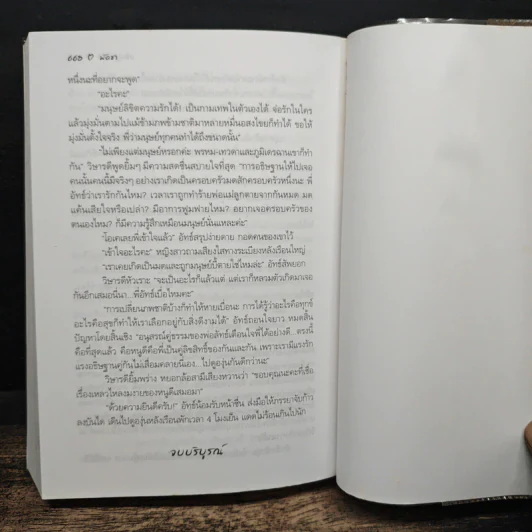 หนึ่งนะที่อยากจะพูด"
"อะไรคะ"
"มนุษย์ลิขิตความรักได้! เป็นกามเทพในตัวเองได้ จ่อรักในใคร
แล้วมุ่งมั่นตามไปแม้ข้ามภพข้ามชาติมาหลายหมื่นอสงไขยก็ทำได้ ขอให้
มุ่งมั่นตั้งใจจริง พี่ว่ามนุษย์ทุกคนทำได้ถึงขนาดนั้น"
"ไม่เพียงแต่มนุษย์หรอกค่ะ พรหม-เทวดาและภูมิเดรฉานเราก็ทำ
กัน" วิษารตีพูดยิ้มๆ มีความสดชื่นสบายใจที่สุด "การอธิษฐานให้ไปเจอ
คนนั้นคนนี้มีจริงๆ อย่างเราเกิดเป็นครอบครัวมดสักครอบครัวหนึ่งนะ พี่
อัทธ์ว่าเรารักกันไหม? เวลาเราถูกทำร้ายพ่อแม่ลูกตายจากกันหมด มด
แค้นเสียใจหรือเปล่า? มีอาการฟูมฟายไหม? อยากเจอครอบครัวของ
ตนเองไหม? ก็มีความรู้สึกเหมือนมนุษย์นั่นแหละค่ะ"
"โอเคเลยพี่เข้าใจแล้ว" อัทธ์สรุปง่ายดาย กอดคนของเขาไว้
"เข้าใจอะไรคะ" หญิงสาวถามเสียงใสทางระเบียงหลังเรือนใหญ่
"เราเคยเกิดเป็นมดและถูกมนุษย์บี้ตายใช่ไหมล่ะ" อัทธ์สัพยอก
วิษารตีหัวเราะ "จะเป็นอะไรก็แล้วแต่ แต่เราก็หลวมตัวเกิดมาเจอ
กันอีกเสมอนี่นา...พี่อัทธ์เบื่อไหมคะ"
"การเปลี่ยนภพชาติบ้างก็ทำให้หายเบื่อนะ การได้รู้ว่าอะไรคือทุกข์
อะไรคือสุขก็ทำให้เราเลือกอยู่กับสิ่งดีงามได้" อัทธ์ถอนใจยาว หมดสิ้น
ปัญหาโดยสิ้นเชิง "อนุสรณ์คู่ธรรมของพ่อสัทธ์เตือนใจพี่ได้อย่างดี...ตรงนี้
คือที่สุดแล้ว คือหนูตีคือพี่เป็นคู่ลิขสิทธิ์ของกันและกัน เพราะเรามีแรงรัก
แรงอธิษฐานคู่กันไม่เสื่อมคลายนี่เอง...ไปดูองุ่นกันดีกว่านะ"
วิษารตียิ้มพร่าง หยอกล้อสามีเสียงหวานว่า "ขอบคุณนะคะที่เชื่อ
เรื่องเหลวไหลงมงายของหนูตีเสมอมา"
"ด้วยความยินดีครับ!" อัทธ์น้อมรับหน้าชื่น ส่งมือให้ภรรยาจับก้าว
ลงบันได เดินไปดูองุ่นหลังเรือนพักเวลา 4 โมงเย็น แดดไม่ร้อนเกินไปนัก
จบบริบูรณ์